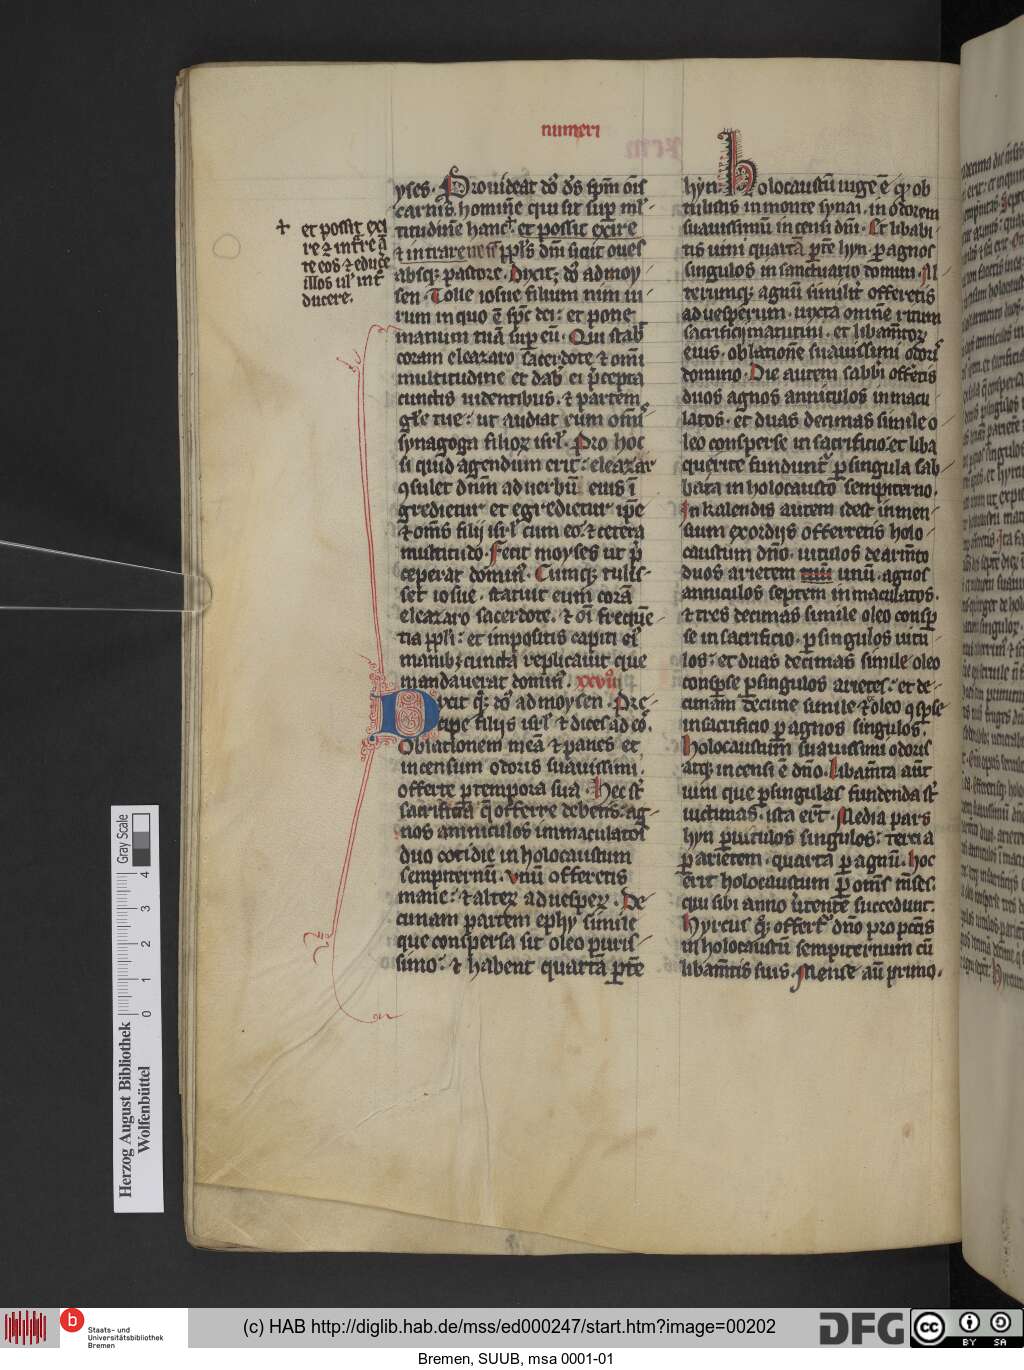 numeri
yses. Prouideat dn̄s ds̄ spm̄ om̄is
carnis. hominē qui sit sup ml'
titudinē hanc. et possit exire
⁊ intrare ne sit ppl's dn̄i sicut oues
absq; pastore. Dixit; dn̄s ad moy
sen. Tolle iosue filium nun ui
rum in quo ē sp̄c dei: et pone
manum tuā sup eū. Qui stab
coram eleazaro sacerdote ⁊ om̄i
multitudine et dab ei p̄cepta
cunctis uidentibus. ⁊ partem
gl'e tue: ut audiat eum om̄is
synagoga filioꝝ isrl'. Pro hoc
si quid agendum erit: eleazar
ꝯsulet dn̄m ad uerbū eius ī
gredietur et egredietur ip̄e
⁊ om̄s filij isrl' cum eo. ⁊ cetera
multitudo. Fecit moyses ut p̄
ceperat domin'. Cumq; tulis
set iosue. statuit eum corā
eleazaro sacerdote. ⁊ oī frequē
tia ppl'i: et impositis capiti ei'
manibꝫ cuncta replicauit que
mandauerat domin'. xxviii
Dixit q̄; dn̄s ad moysen. Pre
cipe filijs isrl' ⁊ dices ad eos.
Oblationem meā ⁊ panes et
incensum odoris suauissimi.
offerte ꝑ tempora sua. Hec st̄
sacrificia q̄ offerre debetis. ag
nos anniculos immaculatos
duo cotidie in holocaustum
sempiternū. Vnū offeretis
mane: ⁊ alteꝝ ad uesperꝝ. De
cimam partem ephy simile
que conspersa sit oleo puris
simo: ⁊ habeat quartā ꝑte
✝ et possit exi
re ⁊ intrea
te eos ⁊ educe
illos ul' int
ducere.
hyn. Holocaustū iuge ē qd ob
tulistis in monte synai. in odorem
suauissimū incensi dn̄i. Et libabi
tis uini quartā ꝑte hyn. ꝑ agnos
singulos in sanctuario domini. Al
terumq; agnū similit offeretis
ad uesperum. iuxta omnē ritum
sacrificij matutini. et libam̄toꝝ
eius. oblationē suauissimi odoris
domino. Die autem sabbi offetis
duos agnos anniculos inmacu
latos. et duas decimas simile o
leo consperse in sacrificio. et liba
que rite fundunt ꝑ singula sab
bata in holocausto sempiterno.
In kalendis autem idest in men
sium exordijs offerretis holo
caustum dn̄o. uitulos de arm̄to
duos arietem unū. agnos
anniculos septem inmaculatos.
⁊ tres decimas simile oleo consp
se in sacrificio. ꝑ singulos uitu
los: et duas decimas simile oleo
consꝑse ꝑ singulos arietes: et de
cimam decime simile ex oleo ꝯsꝑse
in sacrificio ꝑ agnos singulos.
Holocaustum suauissimi odoris
atq; incensi ē dn̄o. Libam̄ta aūt
uini que ꝑ singulas fundenda st̄
uictimas. ista er̄t. Media pars
hyn ꝑ uitulos singulos: tercia
ꝑ arietem. quarta ꝑ agnū. Hoc
erit holocaustum ꝑ om̄s m̄ses.
qui sibi anno uertente succedunt.
Hyrcus q̄; offert dn̄o pro pctis
in holocaustū sempiternum cū
libam̄tis suis. Mense aū primo.
Gray Scale
0 1 2 3 4
Herzog August Bibliothek
Wolfenbüttel
Staats- und
Universitätsbibliothek
Bremen
(c) HAB http://diglib.hab.de/mss/ed000247/start.htm?image=00202
DFG
cc BY SA
Bremen, SUUB, msa 0001-01